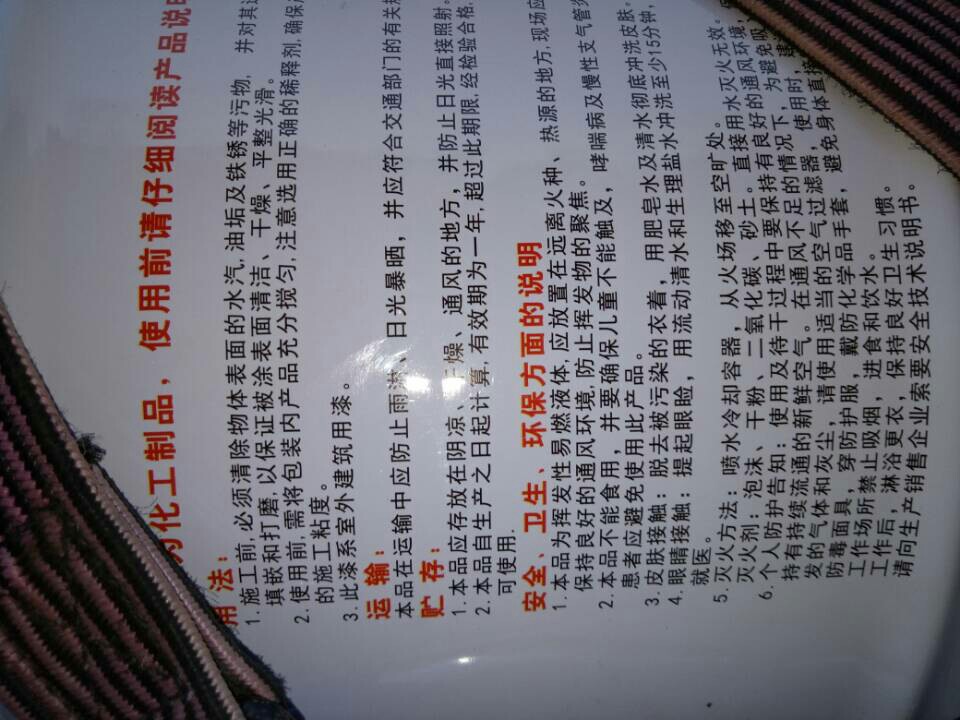 为化工制品，使用前请仔细阅读产品说
用法：
1. 施工前,必须清除物体表面的水汽,油垢及铁锈等污物, 并对其
填嵌和打磨,以保证被涂表面清洁、干燥、平整光滑。
2. 使用前,需将包装内产品充分搅匀,注意选用正确的稀释剂,确保
的施工粘度。
3. 此漆系室外建筑用漆。
运输：
本品在运输中应防止雨淋、日光暴晒，并应符合交通部门的有关
贮存：
1. 本品应存放在阴凉、干燥、通风的地方，并防止日光直接照射。
2. 本品自生产之日起计算,有效期为一年,超过此期限,经检验合格,
可使用.
安全、卫生、环保方面的说明
1. 本品为挥发性易燃液体,应放置在远离火种、热源的地方,现场应
保持良好的通风环境,防止挥发物的聚焦。
2. 本品不能食用，并要确保儿童不能触及，哮喘病及慢性支气管炎
患者应避免使用此产品。
3. 皮肤接触：脱去被污染的衣着，用肥皂水及清水彻底冲洗皮肤。
4. 眼睛接触：提起眼睑，用流动清水和生理盐水冲洗至少15分钟,
就医。
5. 灭火方法：喷水冷却容器，从火场移至空旷处。
灭火剂：泡沫、干粉、二氧化碳、砂土。直接用水灭火无效。
6. 个人防护告知：使用及待干过程中要保持有良好的通风环境,
持有持续流通的新鲜空气。在通风不足的情况下，为避免吸
发的气体和灰尘，请使用适当的空气过滤器，使用时，建
防毒面具，穿防护服，戴防化学品手套，避免身体直接
工作场所禁止吸烟，进食和饮水。
工作后，淋浴更衣，保持良好卫生习惯。
请向生产销售企业索要安全技术说明书。